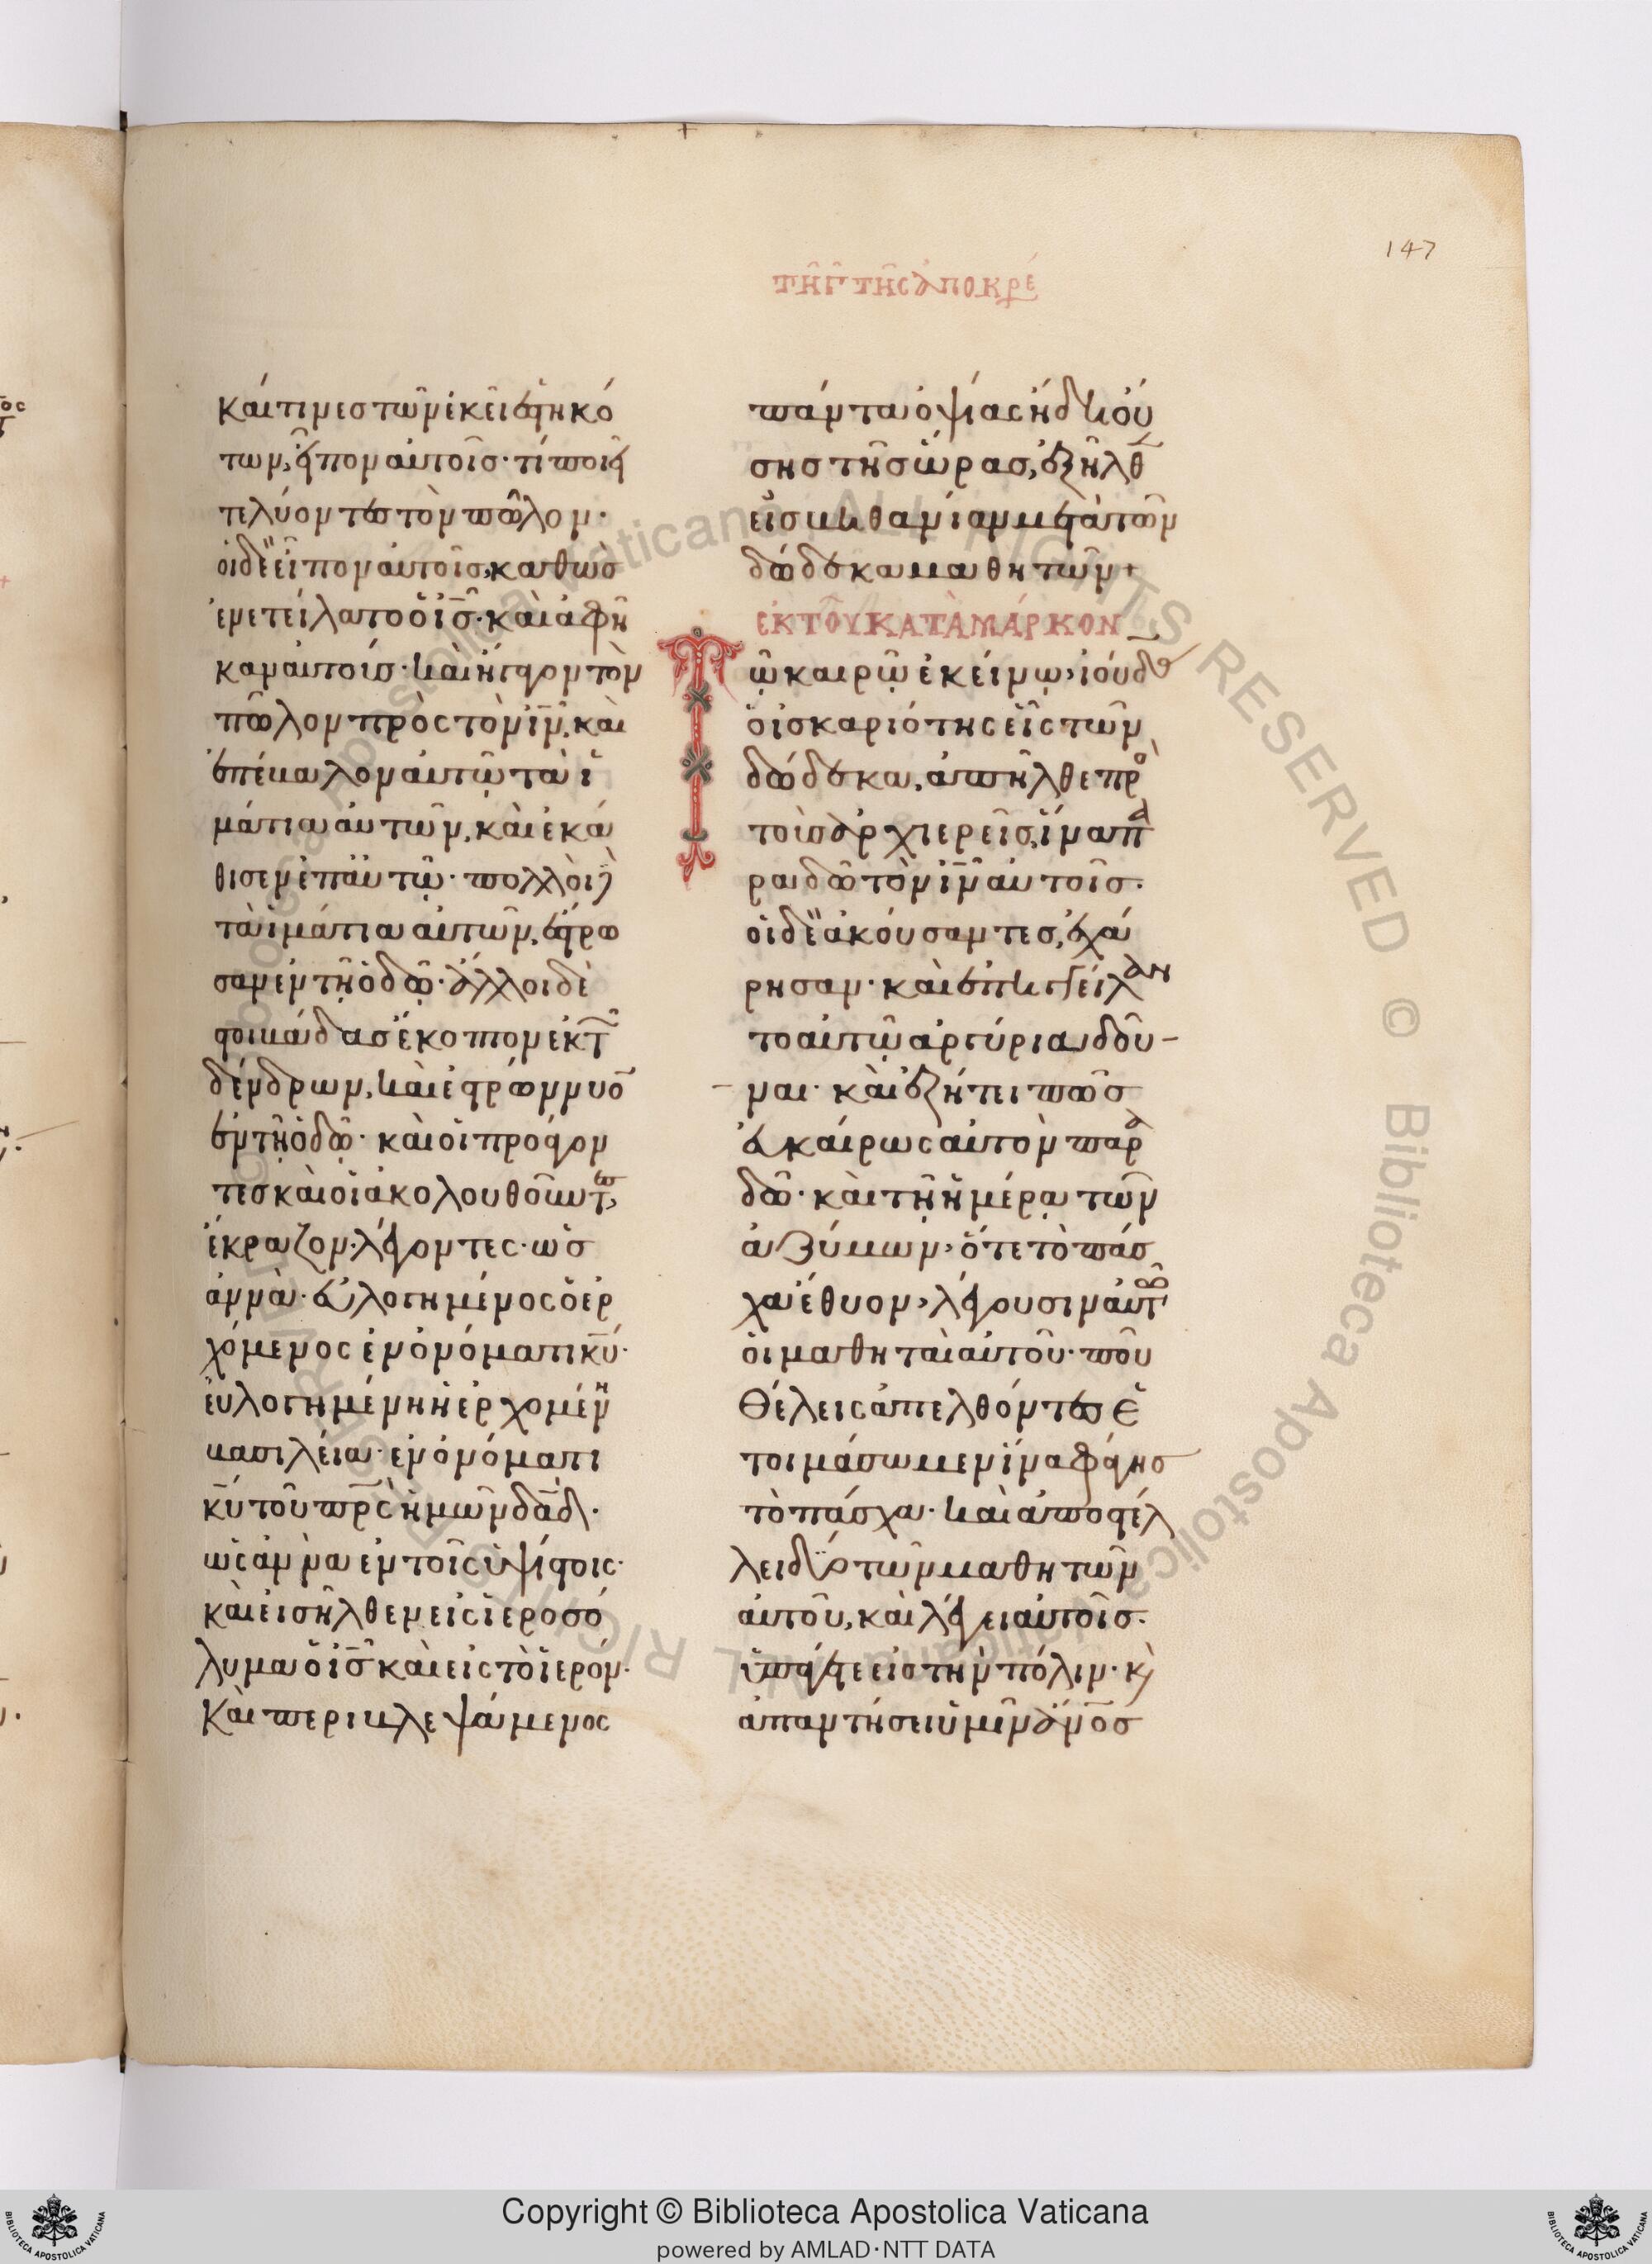 147
τῆ γ̄ τῆς ἀποκρέ
καί τινες τῶν ἐκεῖ ἑστηκό
των, εἶπον αὐτοῖς· τί ποιεῖ
τε λύοντες τὸν πῶλον·
οἱ δὲ εἶπον αὐτοῖς, καθὼς
ἐνετείλατο ὁ ις̄· καὶ ἀφῆ
καν αὐτοῖς· καὶ ἤγαγον τὸν
πῶλον πρὸς τὸν ιν̄, καὶ
ἐπέβαλον αὐτῷ τὰ ἱ
μάτια αὐτῶν, καὶ ἐκά
θισεν ἐπ' αὐτῷ· πολλοὶ δὲ
τὰ ἱμάτια αὐτῶν, ἔστρω
σαν ἐν τῇ ὁδῷ· ἄλλοι δὲ
στοιβάδας ἔκοπτον ἐκ τ
δένδρων, καὶ ἐστρώννυο
ἐν τῇ ὁδῷ· καὶ οἱ προάγον
τες καὶ οἱ ἀκολουθοῦντες,
ἔκραζον· λέγοντες· ὡσ
αννά· εὐλογημένος ὁ ἐρ
χόμενος ἐν ὀνόματι κῡ·
εὐλογημένη ἡ ἐρχομένη
βασιλεία· ἐν ὀνόματι
κῡ τοῦ πρ̄ς ἡμῶν δᾱδ·
ὡσαννὰ ἐν τοῖς ὑψίστοις·
καὶ εἰσῆλθεν εἰς ἱεροσό
λυμα ὁ ις̄ καὶ εἰς τὸ ἱερόν·
Καὶ περιβλεψάμενος
πάντα ὀψίας ἤδη οὔ
σης τῆς ὥρας, ἐξῆλθ
εἰς βηθανίαν μετὰ τῶν
δώδεκα μαθητῶν +
ἐκ τοῦ κατὰ μάρκον
Τῷ καιρῷ ἐκείνῳ, ἰούδας
ὁ ἰσκαριότης εἷς τῶν
δώδεκα, ἀπῆλθε πρὸ
τοὺς ἀρχιερεῖς, ἵνα πα
ραδῶ τὸν ιν̄ αὐτοῖς·
οἱ δὲ ἀκούσαντες, ἐχά
ρησαν· καὶ ἐπηγγείλαν
το αὐτῷ ἀργύρια δοῦ-
-ναι· καὶ ἐζήτει πῶς
εὐκαίρως αὐτὸν παρα
δῶ· καὶ τῇ ἡμέρᾳ τῶν
ἀζύμων, ὅτε τὸ πάσ
χα ἔθυον, λέγουσιν αὐτῶ
οἱ μαθηταὶ αὐτοῦ· ποῦ
Θέλεις ἀπελθόντες ἑ
τοιμάσωμεν ἵνα φάγης
τὸ πάσχα· καὶ ἀποστέλ
λει δύο τῶν μαθητῶν
αὐτοῦ, καὶ λέγει αὐτοῖς·
ὑπάγετε εἰς τὴν πόλιν· κὶ
ἀπαντήσει ὑμῖν ἄνο̄ς
Copyright © Biblioteca Apostolica Vaticana
powered by AMLAD·NTT DATA